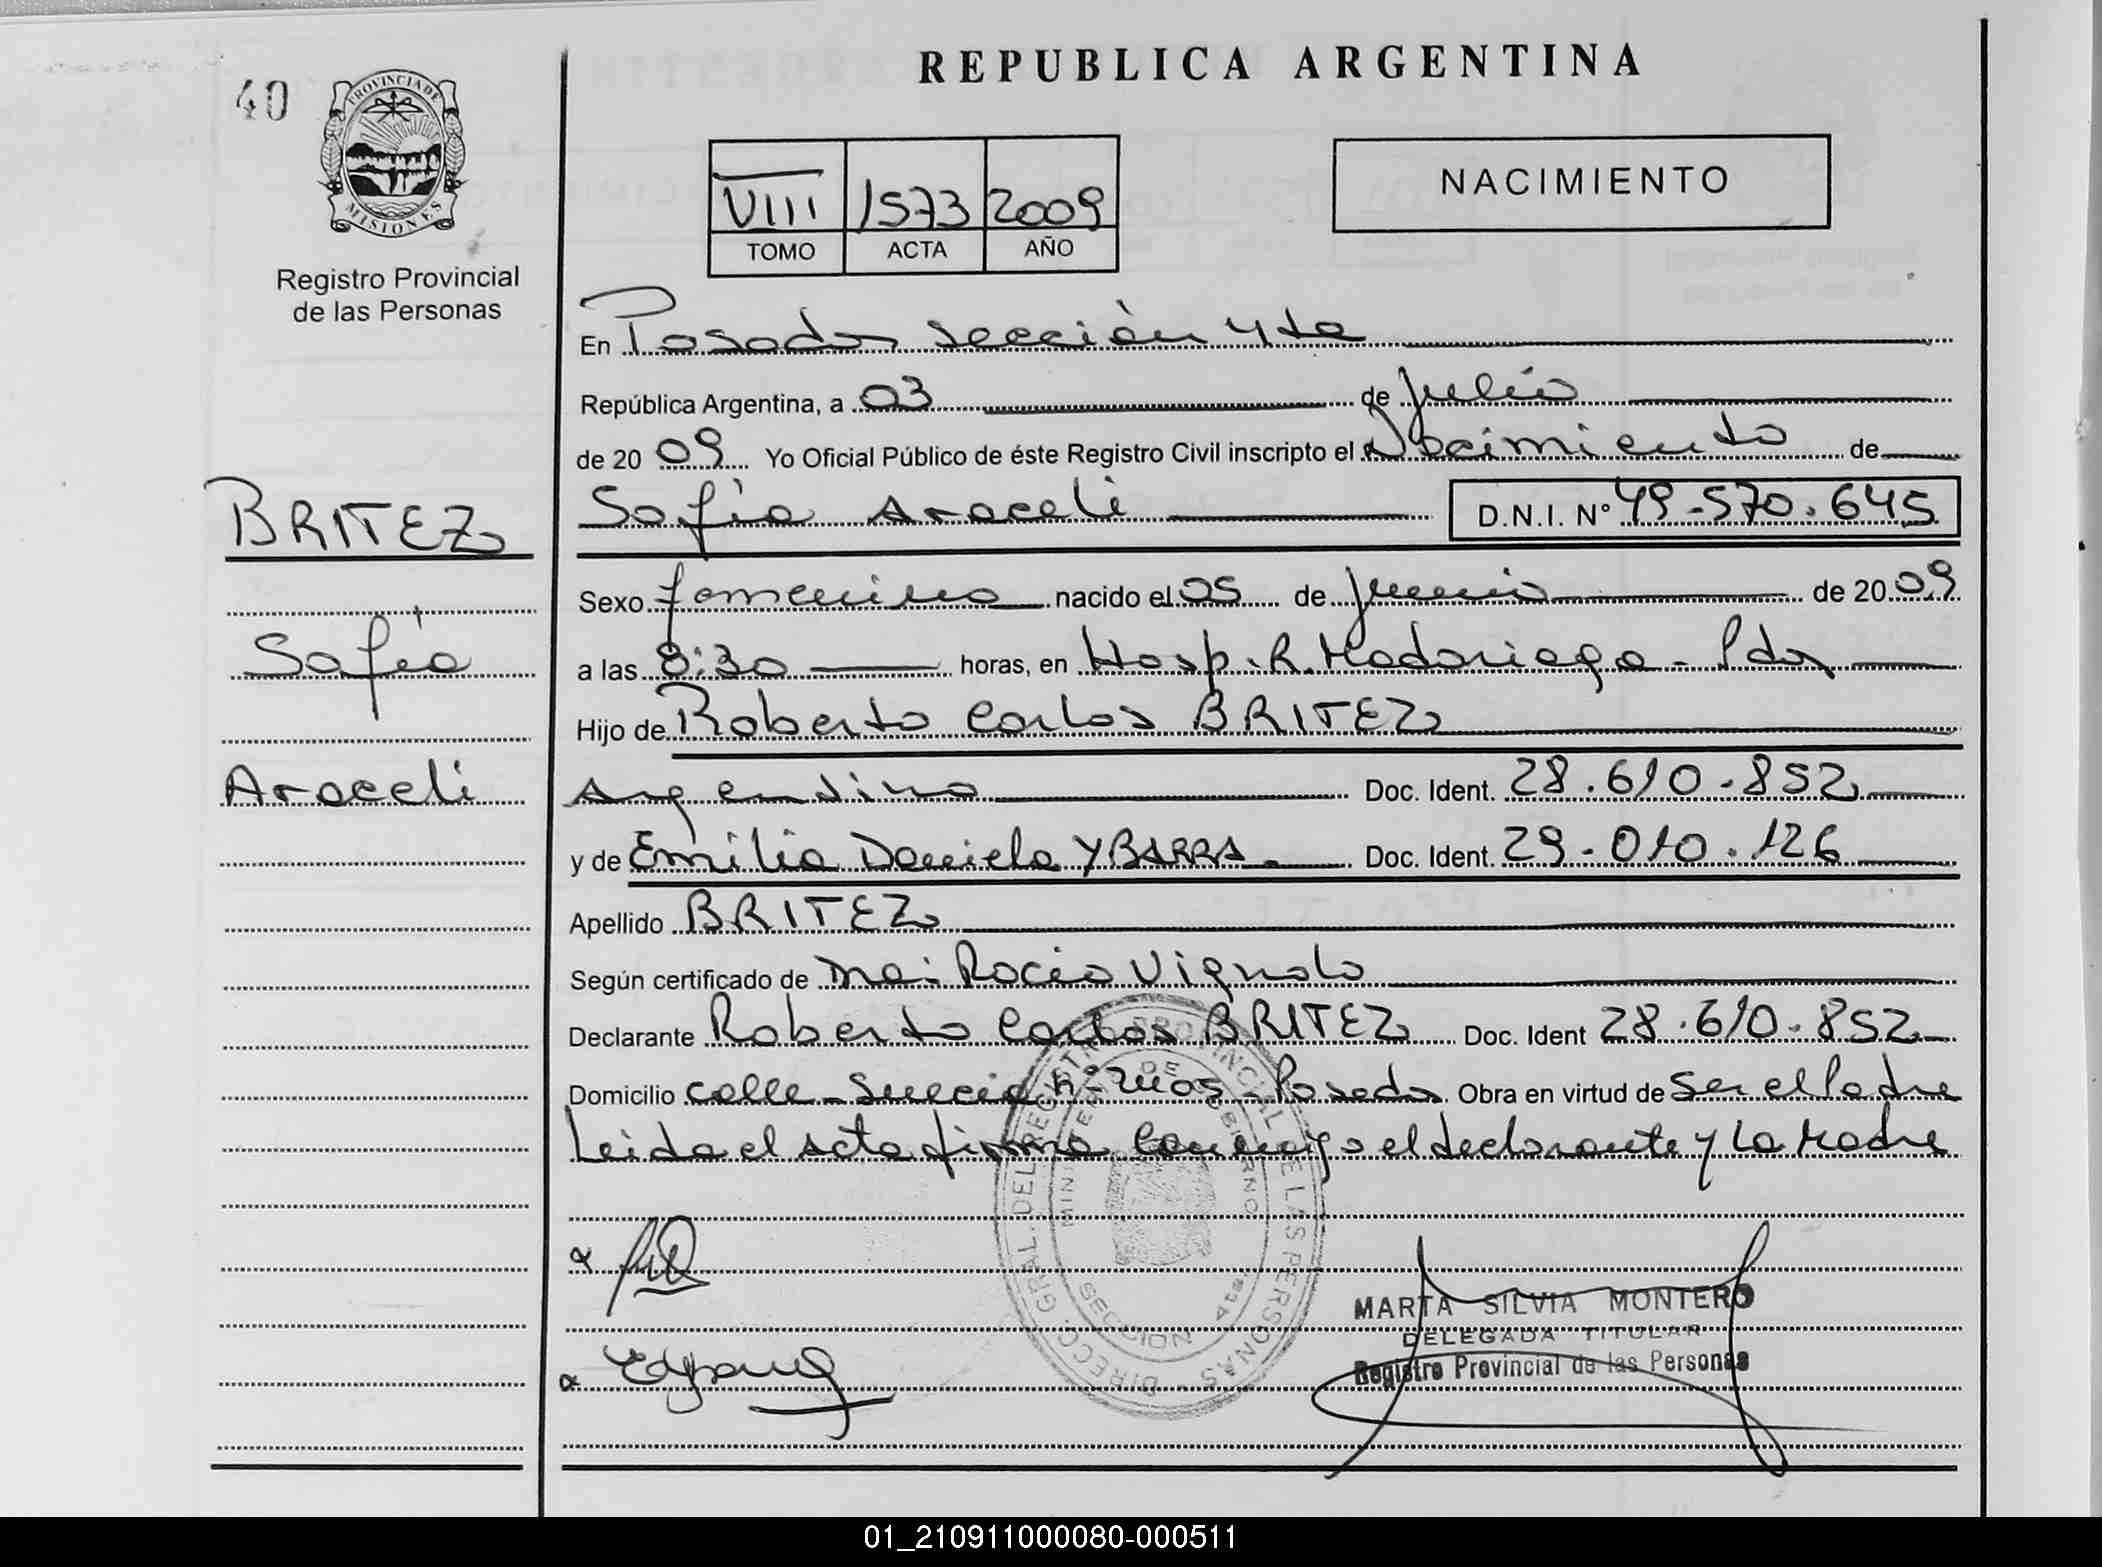 REPUBLICA ARGENTINA
40
PROVINCIA DE
MISIONES
Registro Provincial
de las Personas
VIII 1573 2009
TOMO ACTA AÑO
NACIMIENTO
En Posadas sección 4ta
República Argentina, a 03 de Julio
de 20 09 Yo Oficial Público de éste Registro Civil inscripto el Nacimiento de
BRITEZ
Sofia
Araceli
Sofia Araceli D.N.I. N° 49.570.645
Sexo femenino nacido el 05 de Junio de 20 09
a las 8:30 horas, en Hosp. R. Madariaga - Pdas
Hijo de Roberto Carlos BRITEZ
Argentino Doc. Ident. 28.610.852
y de Emilia Daniela YBARRA Doc. Ident. 29.010.126
Apellido BRITEZ
Según certificado de Rocio Vignolo
Declarante Roberto Carlos BRITEZ Doc. Ident 28.610.852
Domicilio calle Suecia N° Posadas Obra en virtud de Ser el Padre
Leida el acta firma conmigo el declarante y la Madre
DIRECC. GRAL. DEL REGISTRO PROVINCIAL DE LAS PERSONAS
MINISTERIO DE GOBIERNO
SECCION 4ta
MARTA SILVIA MONTERO
DELEGADA TITULAR
Registro Provincial de las Personas
01_210911000080-000511